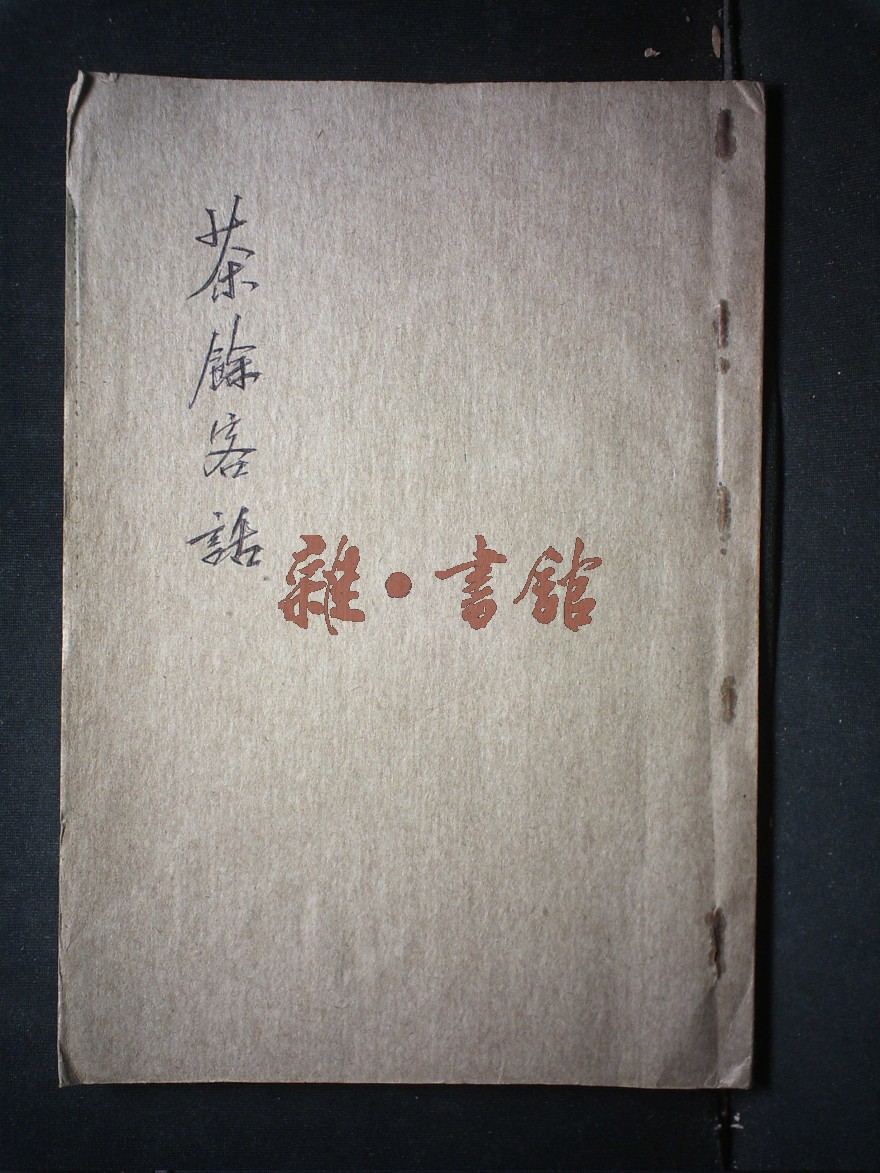 茶餘客話
雜·書館